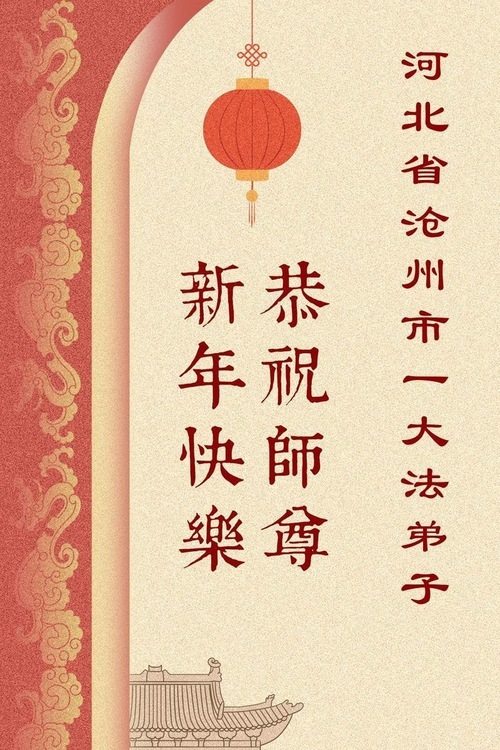 河北省沧州市一大法弟子
恭祝師尊
新年快樂